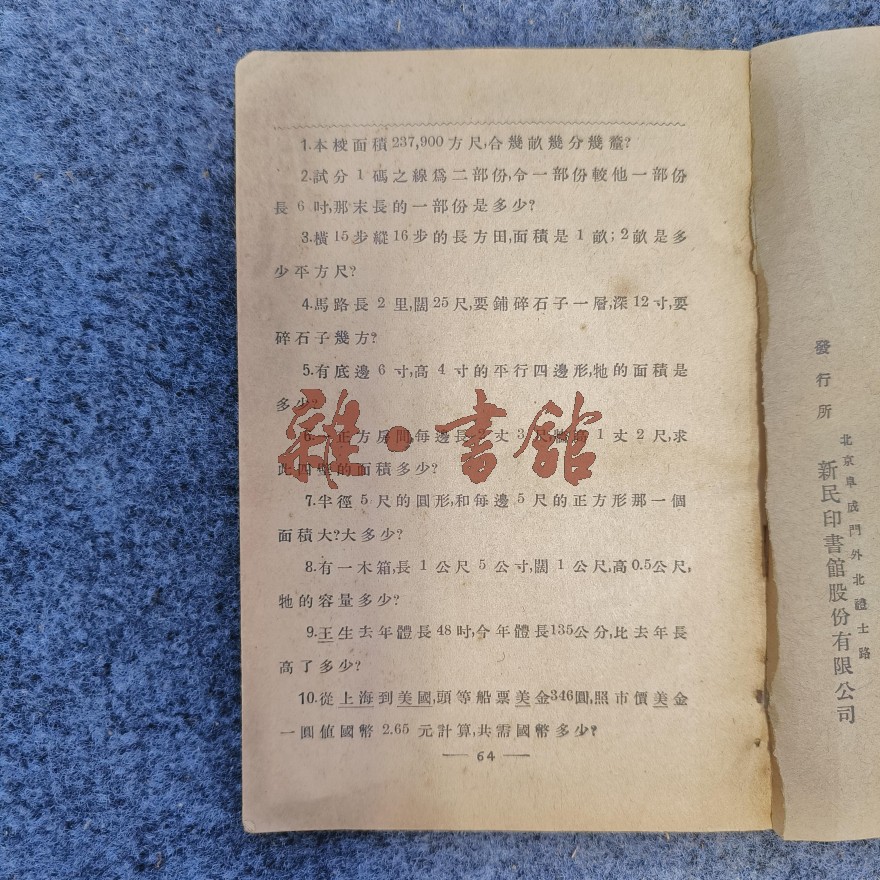 1.本校面積237,900方尺,合幾畝幾分幾釐?
2.試分1碼之線爲二部份,令一部份較他一部份
長6吋,那末長的一部份是多少?
3.橫15步縱16步的長方田,面積是1畝;2畝是多
少平方尺?
4.馬路長2里,闊25尺,要鋪碎石子一層,深12寸,要
碎石子幾方?
5.有底邊6寸,高4寸的平行四邊形,牠的面積是
多少?
正方房間,每邊長 丈3 1丈2尺,求
此四壁的面積多少?
7.半徑5尺的圓形,和每邊5尺的正方形那一個
面積大?大多少?
8.有一木箱,長1公尺5公寸,闊1公尺,高0.5公尺,
牠的容量多少?
9.王生去年體長48吋,今年體長135公分,比去年長
高了多少?
10.從上海到美國,頭等船票美金346圓,照市價美金
一圓值國幣2.65元計算,共需國幣多少?
— 64 —
雜·書館
發行所
北京阜成門外北禮士路
新民印書館股份有限公司